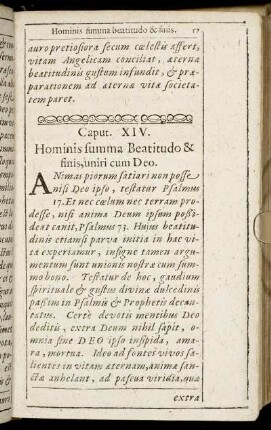 Hominis summa beatitudo & finis. 17
auro pretiosiora secum cœlestis affert,
vitam Angelicam conciliat, æternæ
beatitudinis gustum infundit, & præ-
parationem ad æternæ vitæ societa-
tem paret.
Caput. XIV.
Hominis summa Beatitudo &
finis, uniri cum Deo.
ANimas piorum satiari non posse
nisi Deo ipso, testatur Psalmus
17. Et nec cœlum nec terram pro-
desse, nisi anima Deum ipsum possi-
deat canit, Psalmus 73. Hujus beatitu-
dinis etiamsi parva initia in hac vi-
ta experiamur, insigne tamen argu-
mentum sunt unionis nostræ cum sum-
mo bono. Testatur de hoc, gaudium
spirituale & gustus divinæ dulcedinis
passim in Psalmis & Prophetis decan-
tatus. Certè devotis mentibus Deo
deditis, extra Deum nihil sapit, o-
mnia sine DEO ipso insipida, ama-
ra, mortua. Ideo ad fontes vivos sa-
lientes in vitam æternam, animæ san-
ctæ anhelant, ad pascua viridia, quæ
extra